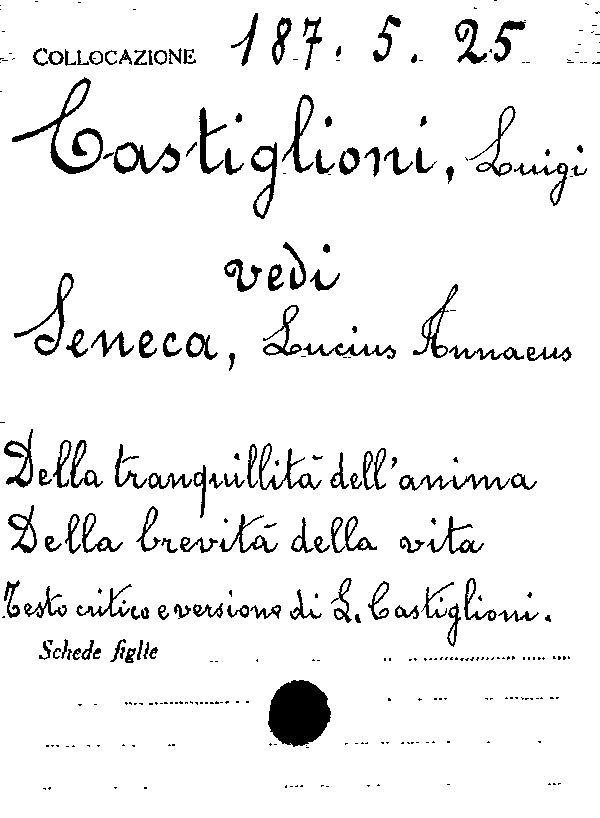 COLLOCAZIONE 187. 5. 25
Castiglioni, Luigi
vedi
Seneca, Lucius Annaeus
Della tranquillità dell'anima
Della brevità della vita
Testo critico e versione di L. Castiglioni.
Schede figlie